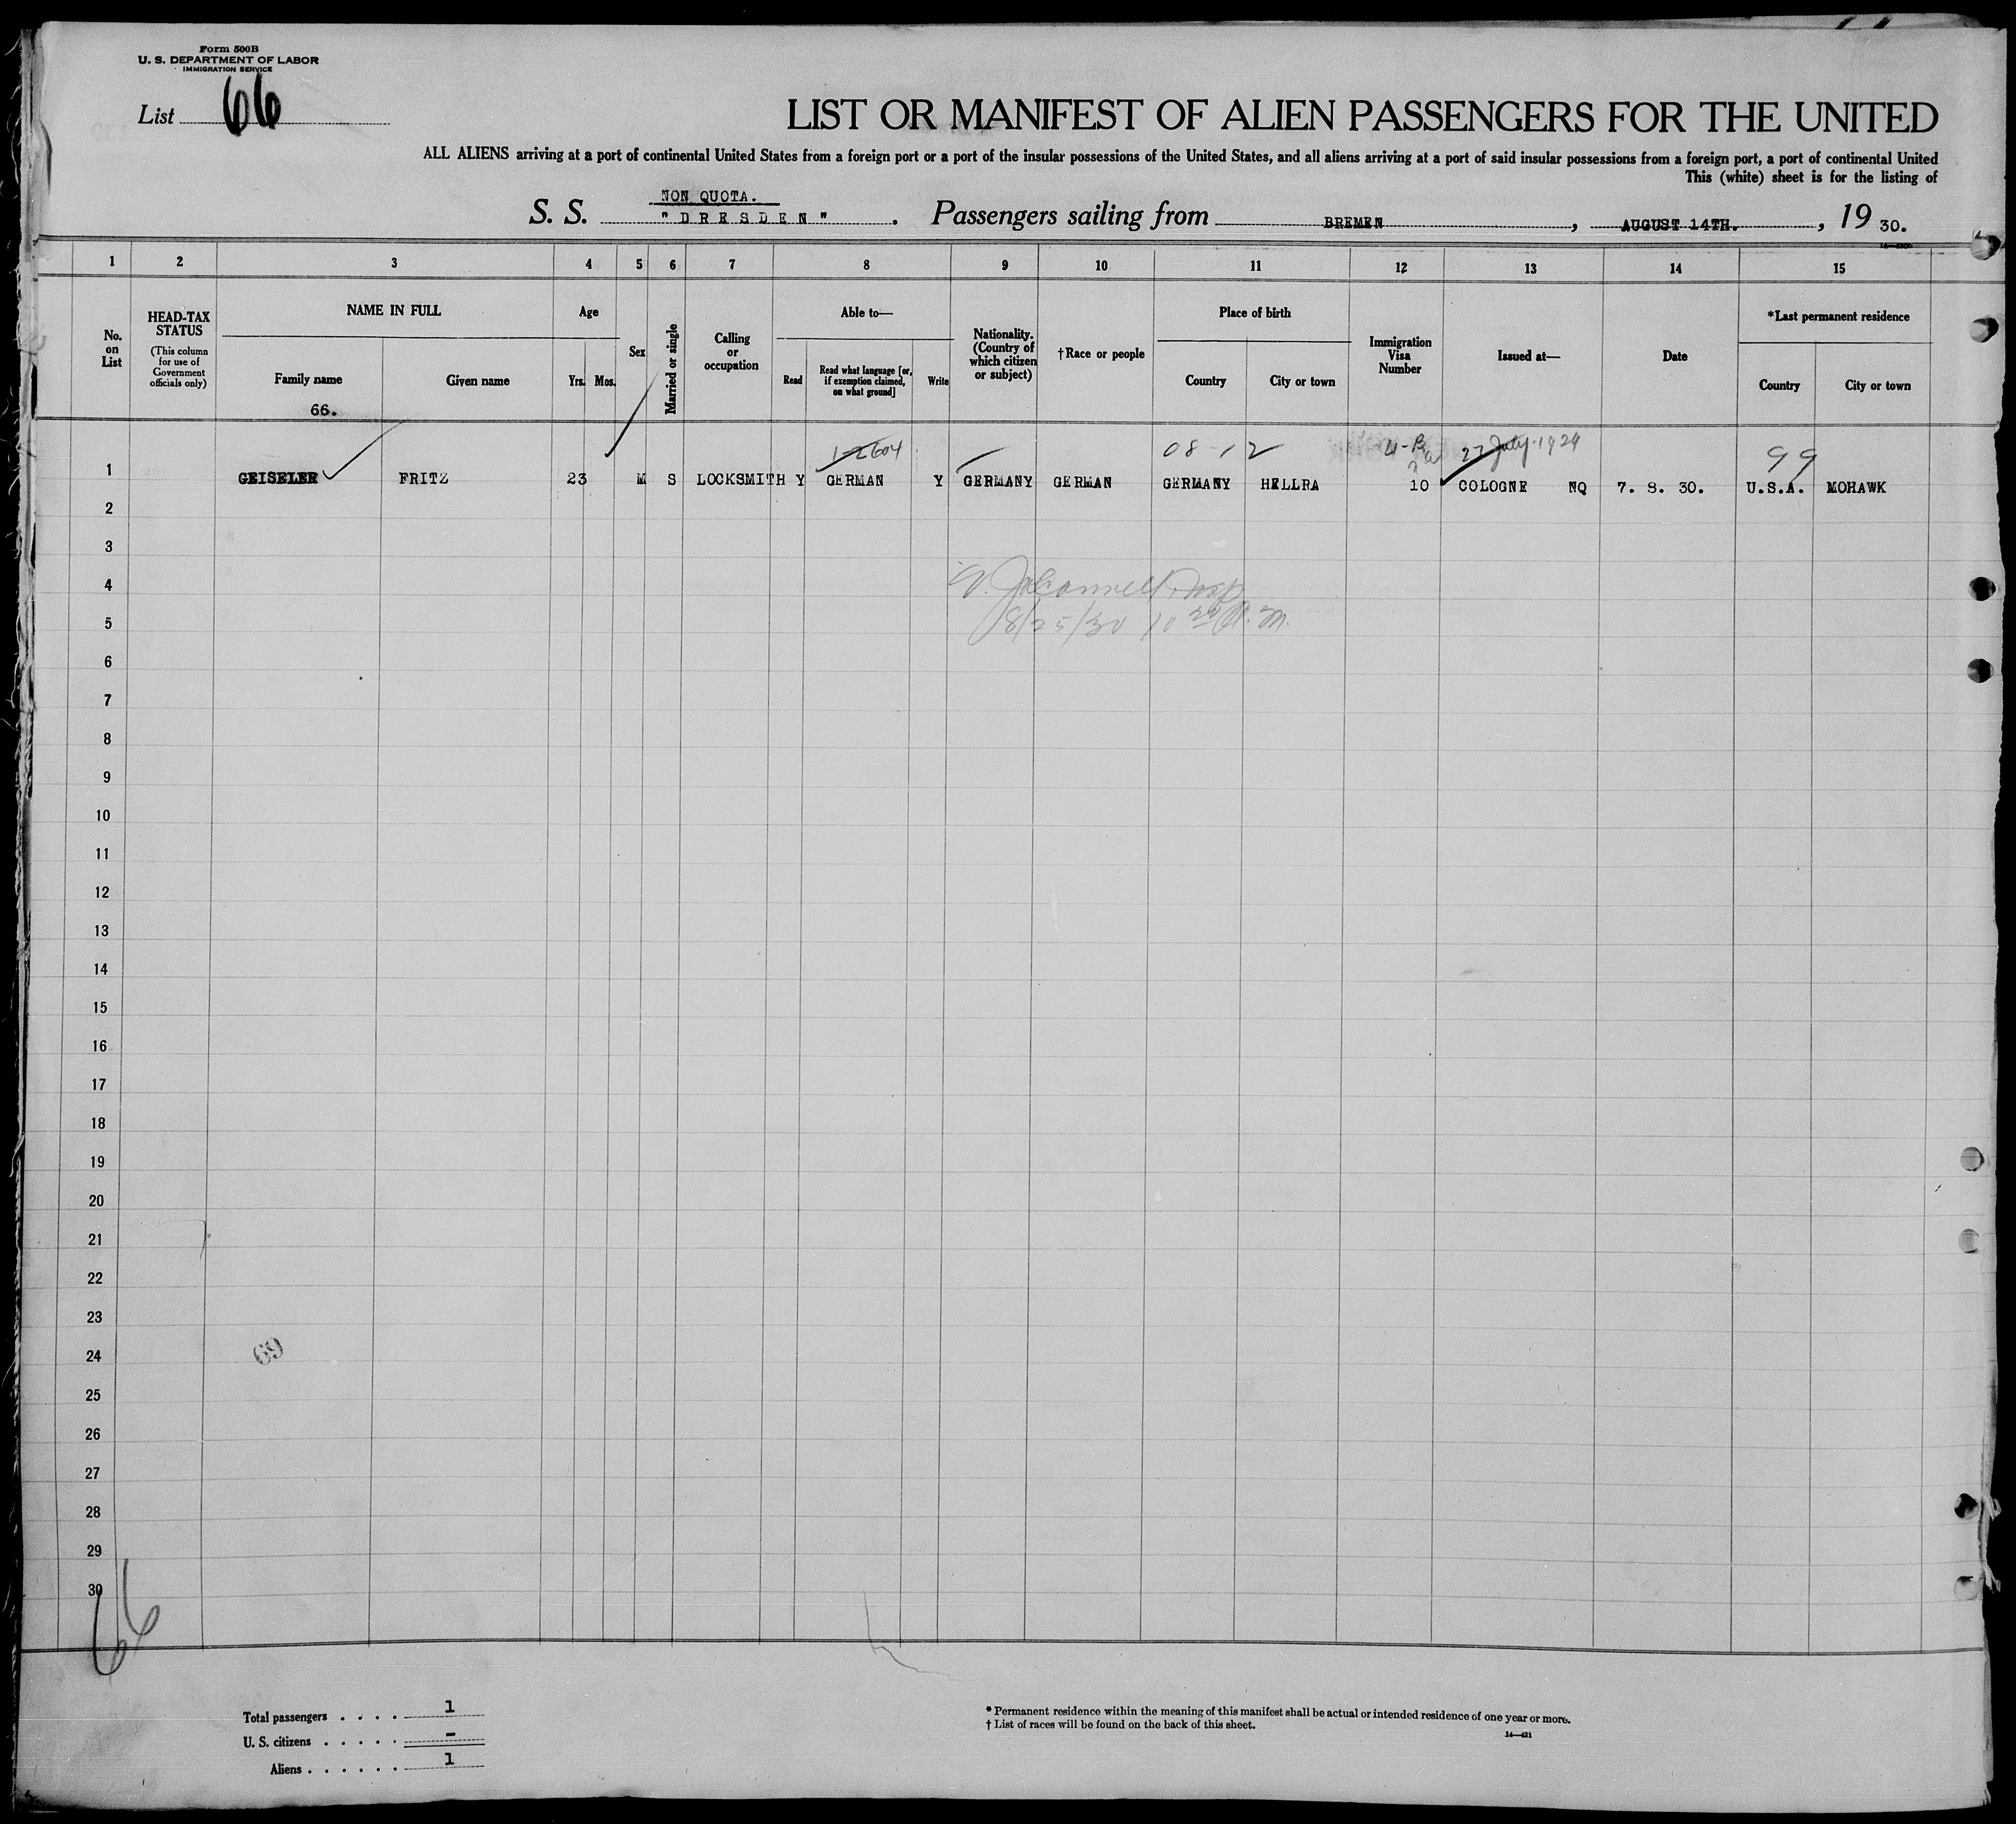 Form 500B
U. S. DEPARTMENT OF LABOR
IMMIGRATION SERVICE
List 66
LIST OR MANIFEST OF ALIEN PASSENGERS FOR THE UNITED
ALL ALIENS arriving at a port of continental United States from a foreign port or a port of the insular possessions of the United States, and all aliens arriving at a port of said insular possessions from a foreign port, a port of continental United
This (white) sheet is for the listing of
NON QUOTA.
S. S. "DRESDEN". Passengers sailing from BREMEN, AUGUST 14TH., 1930.
1 2 3 4 5 6 7 8 9 10 11 12 13 14 15
No. on List
HEAD-TAX STATUS
(This column for use of Government officials only)
NAME IN FULL
Family name
Given name
66.
Age
Yrs. Mos.
Sex
Married or single
Calling or occupation
Able to—
Read
Read what language [or, if exemption claimed, on what ground]
Write
Nationality. (Country of which citizen or subject)
†Race or people
Place of birth
Country
City or town
Immigration Visa Number
Issued at—
Date
*Last permanent residence
Country
City or town
08-12 27 July 1924 99
1 GEISELER FRITZ 23 M S LOCKSMITH Y GERMAN Y GERMANY GERMAN GERMANY HELLRA 10 COLOGNE NQ 7. 8. 30. U.S.A. MOHAWK
2
3
4
8/25/30 10 A.M.
5
6
7
8
9
10
11
12
13
14
15
16
17
18
19
20
21
22
23
69
24
25
26
27
28
29
30
66
Total passengers . . . . 1
U. S. citizens . . . . . –
Aliens . . . . . . 1
* Permanent residence within the meaning of this manifest shall be actual or intended residence of one year or more.
† List of races will be found on the back of this sheet.
14—431